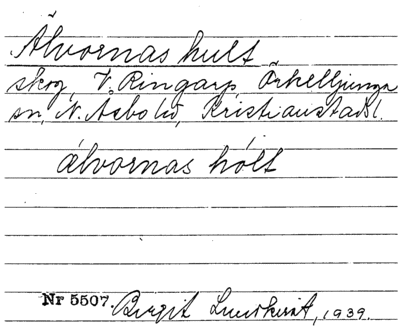 Älvornas hult
skog, V. Ringarp, Örkelljunga
sn, N. Åsbo hd, Kristianstads l.
älvornas hólt
Nr 5507. Birgit Lundkvist, 1939.